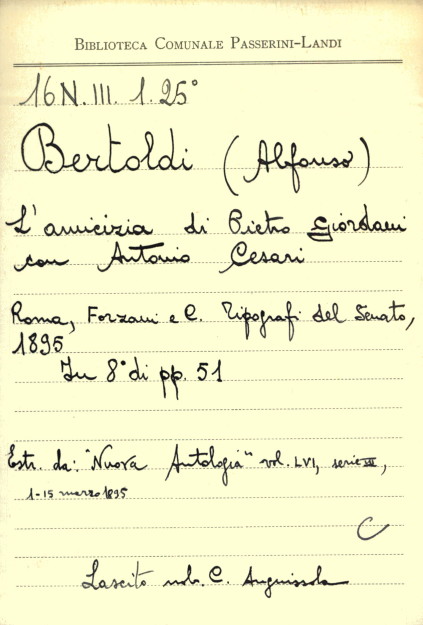 BIBLIOTECA COMUNALE PASSERINI-LANDI
16 N. III. 1. 25°
Bertoldi (Alfonso)
L'amicizia di Pietro Giordani
con Antonio Cesari
Roma, Forzani e C. Tipografi del Senato,
1895
In 8° di pp. 51
Estr. da: "Nuova Antologia" vol. LVI, serie III,
1-15 marzo 1895
C
Lascito nob. C. Anguissola